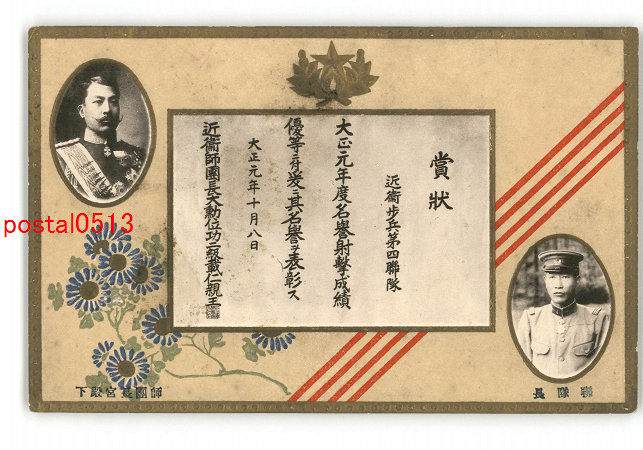 賞狀
近衞步兵第四聯隊
大正元年度名譽射擊成績
優等ニ付爰ニ其名譽ヲ表彰ス
大正元年十月八日
近衞師團長大勳位功二級載仁親王
師團長宮殿下
聯隊長
postal0513